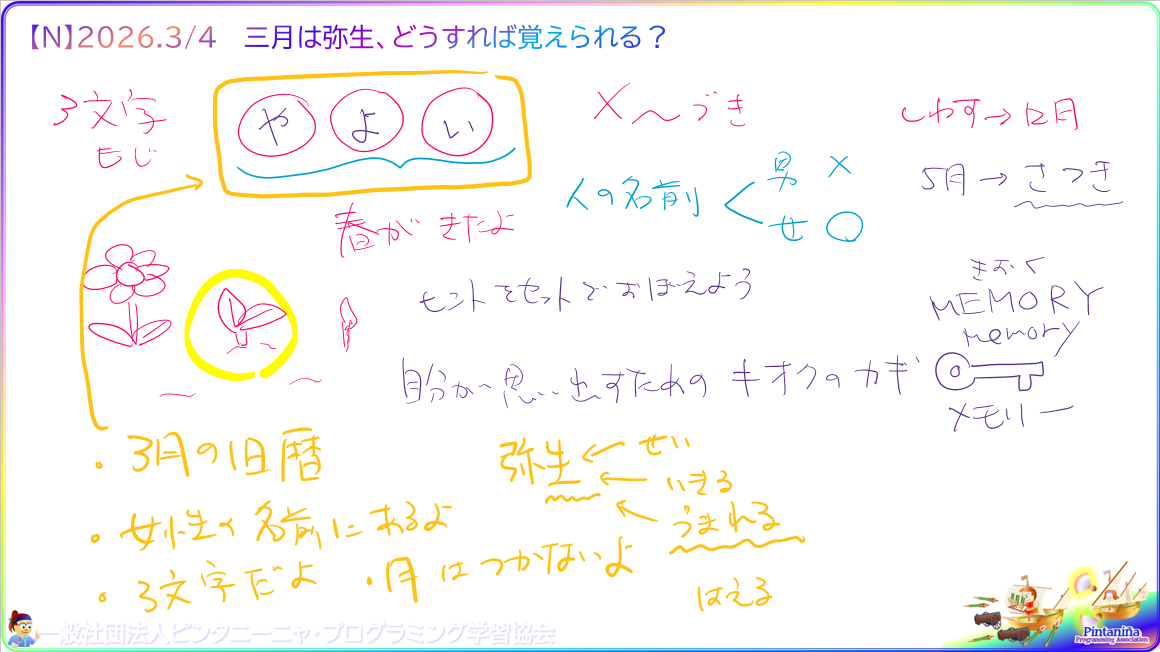 【N】2026.3/4 三月は弥生、どうすれば覚えられる？
3文字
もじ
やよい
×〜づき
しわす→12月
人の名前
男 ×
女 ○
5月→さつき
春がきたよ
ヒントをセットでおぼえよう
きおく
MEMORY
memory
自分が思い出すためのキオクのカギ
メモリー
・3月の旧暦
弥生←せい
←いきる
←うまれる
はえる
・女性の名前にあるよ
・3文字だよ ・月はつかないよ
一般社団法人ピンタニーニャ・プログラミング学習協会
Pintaniña
Programming Association